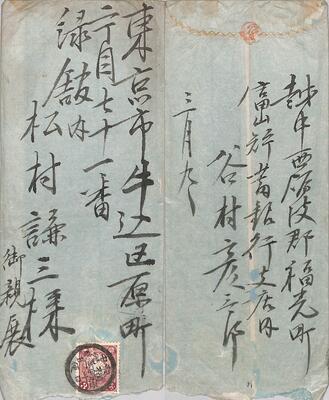 東京市牛込区原町
二丁目七十一番
緑館内
松村謙三様
御親展
越中西礪波郡福光町
富山貯蓄銀行支店内
谷村彦三郎
三月九